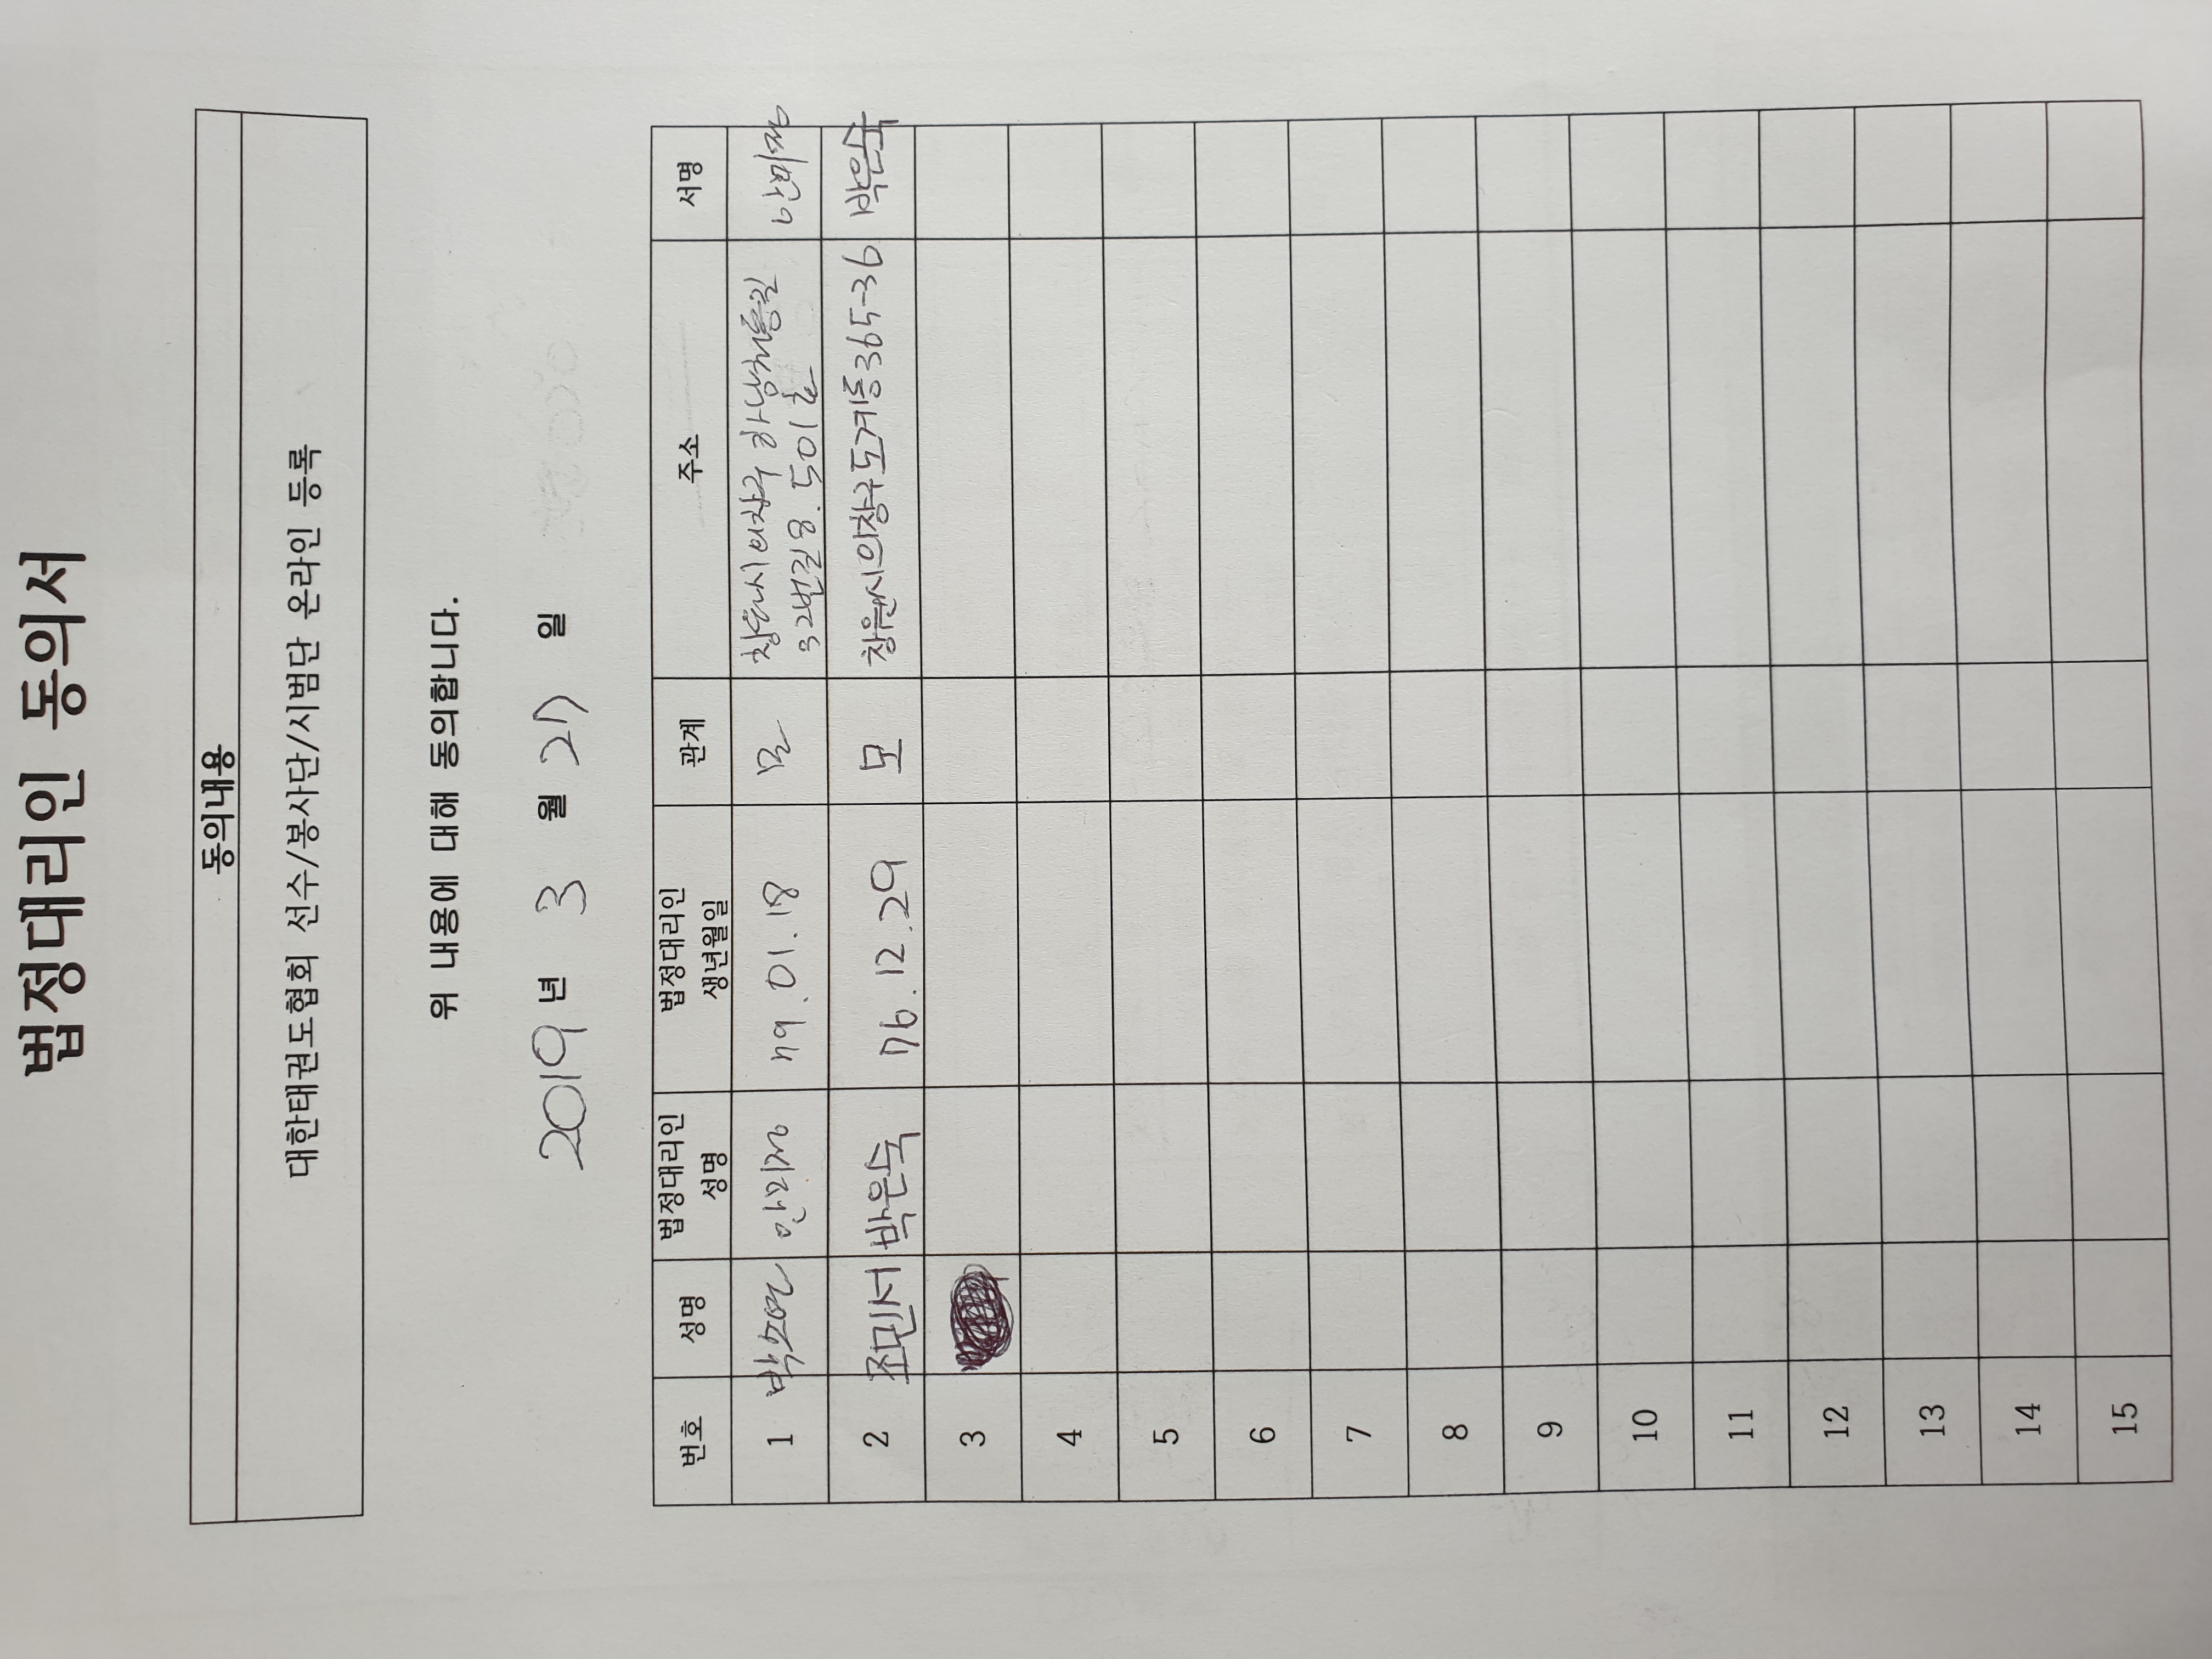 법정대리인 동의서
동의내용
대한태권도협회 선수/봉사단/시범단 온라인 등록
위 내용에 대해 동의합니다.
2019 년 3 월 27 일
번호 성명 법정대리인 성명 법정대리인 생년월일 관계 주소 서명
1 박소연 안미정 79.01.18 모 창원시 의창구
32번길 8. 501호 안미정
2 조민서 박은숙 76.12.29 모 창원시의창구도계동365-36 박은숙
3
4
5
6
7
8
9
10
11
12
13
14
15